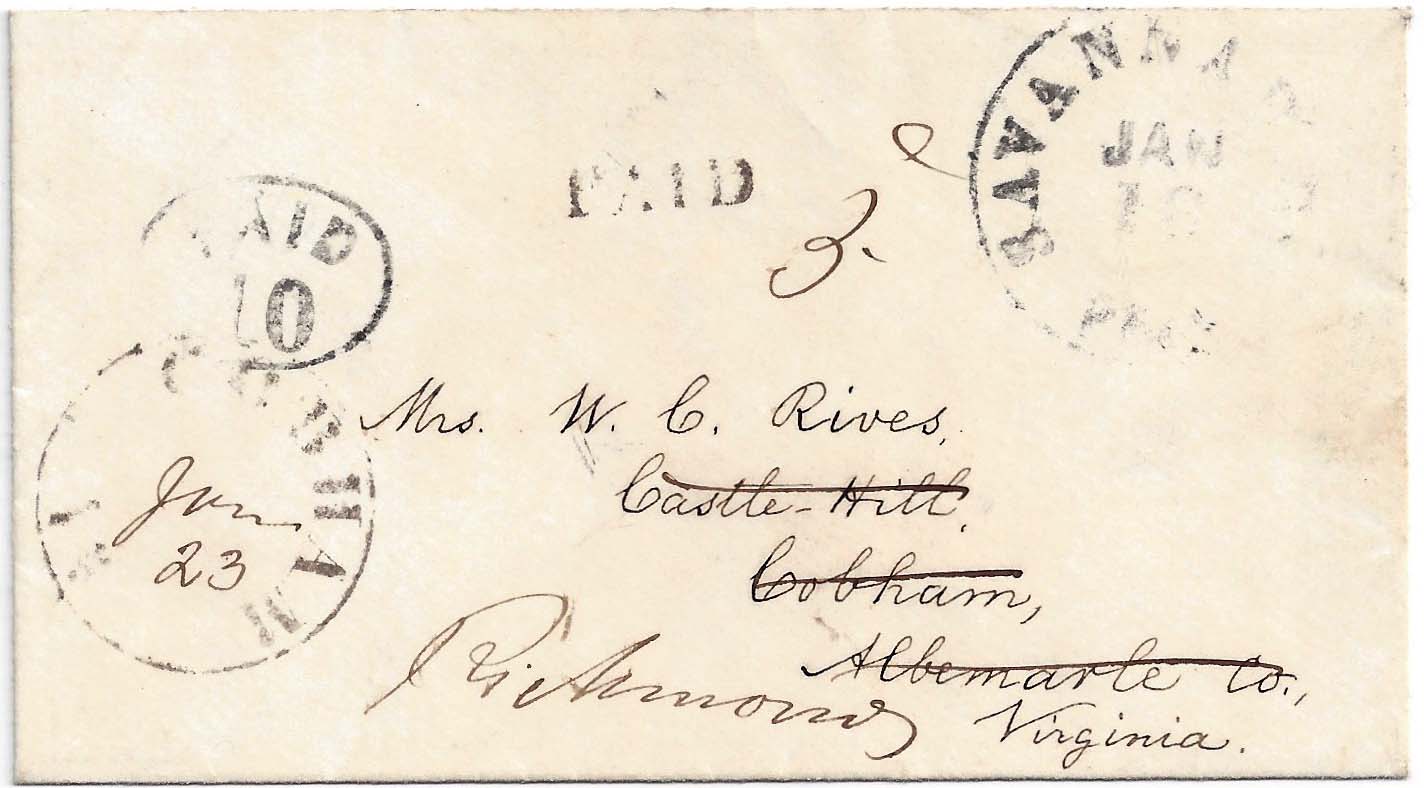 SAVANNAH
JAN
18
PAID
3
PAID
10
COBHAM
Jan
23
Mrs. W. C. Rives,
Castle-Hill,
Cobham,
Albemarle Co.,
Richmond
Virginia.